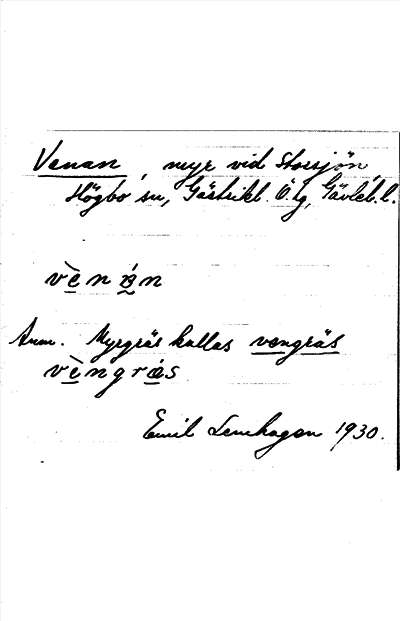 Venan, myr vid Storsjön,
Högbo sn, Gästrikl. Ö. tg, Gävleb. l.
vènán
Anm. Myrgräs kallas vengräs
vèngræs
Emil Lenhagen 1930.